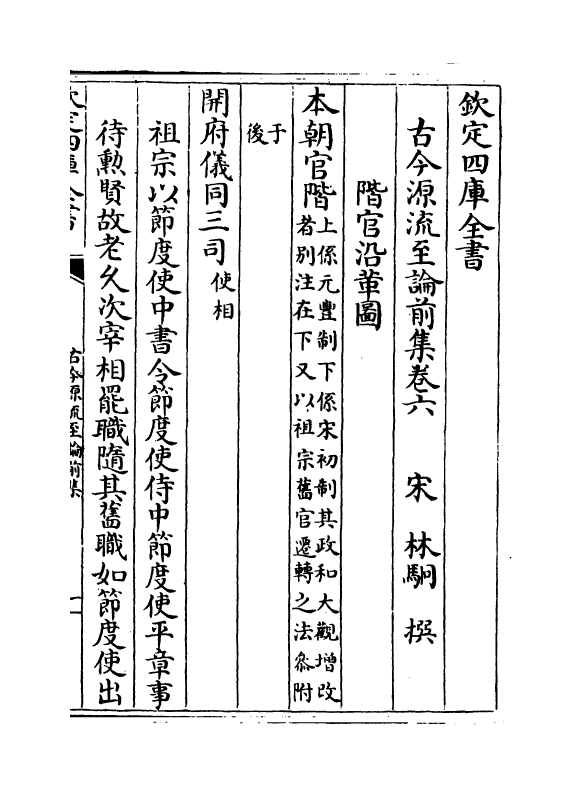 欽定四庫全書
古今源流至論前集卷六　宋　林駉　撰
階官沿革圖
本朝官階上係元豐制下係宋初制其政和大觀增改
者别注在下又以祖宗舊官遷轉之法叅附
于
後
開府儀同三司使相
祖宗以節度使中書令節度使侍中節度使平章事
待勲賢故老久次宰相罷職隨其舊職如節度使出
欽定四庫全書
古今源流至論前集
一